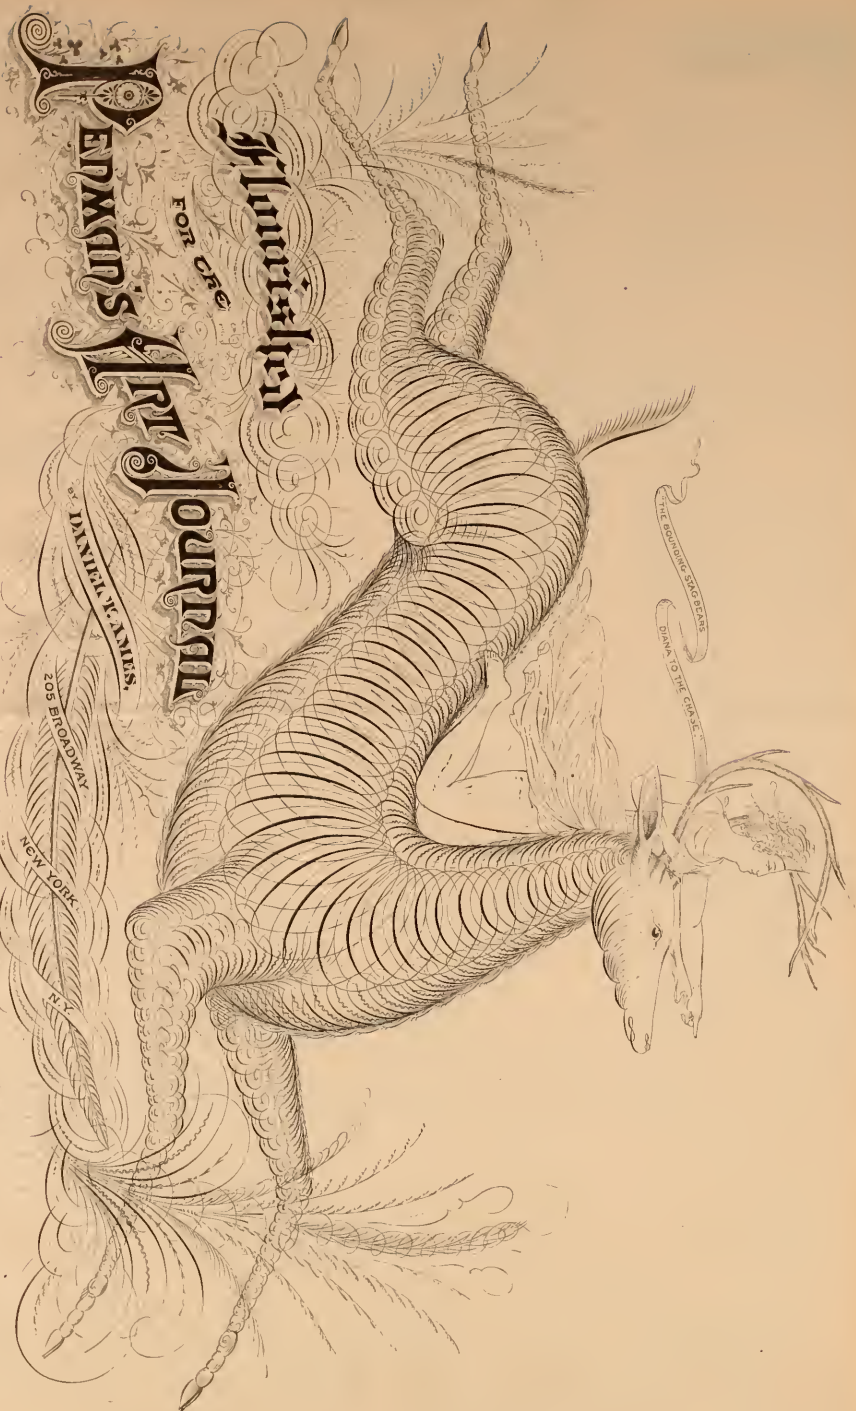 "THE BOUNDING STAG BEARS
DIANA TO THE CHASE."
Flourished
FOR THE
PENMAN'S ART JOURNAL
BY DANIEL T. AMES,
205 BROADWAY
NEW YORK,
N.Y.